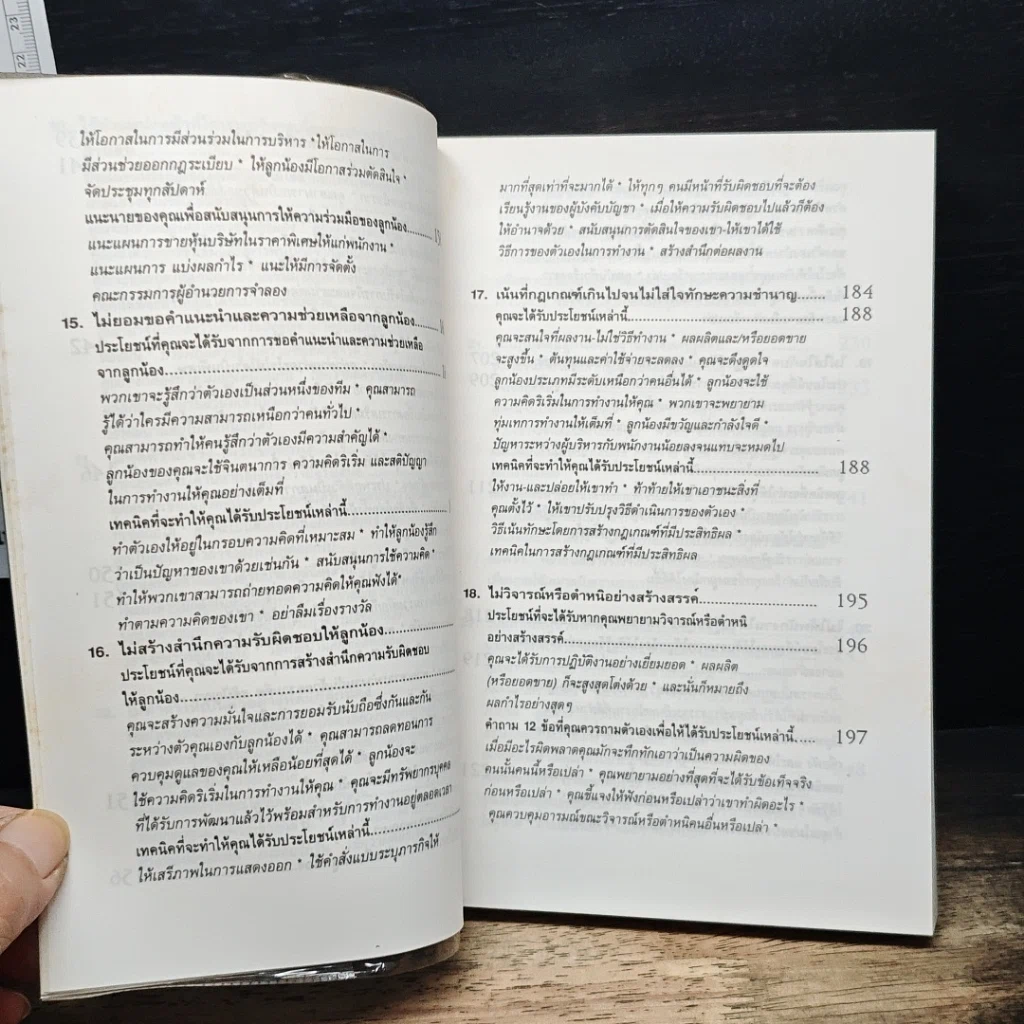 23
22
ให้โอกาสในการมีส่วนร่วมในการบริหาร * ให้โอกาสในการ
มีส่วนช่วยออกกฎระเบียบ * ให้ลูกน้องมีโอกาสร่วมตัดสินใจ *
จัดประชุมทุกสัปดาห์
แนะนายของคุณเพื่อสนับสนุนการให้ความร่วมมือของลูกน้อง........
แนะแผนการขายหุ้นบริษัทในราคาพิเศษให้แก่พนักงาน *
แนะแผนการ แบ่งผลกำไร * แนะให้มีการจัดตั้ง
คณะกรรมการผู้อำนวยการจำลอง
15. ไม่ยอมขอคำแนะนำและความช่วยเหลือจากลูกน้อง......
ประโยชน์ที่คุณจะได้รับจากการขอคำแนะนำและความช่วยเหลือ
จากลูกน้อง..................................................
พวกเขาจะรู้สึกว่าตัวเองเป็นส่วนหนึ่งของทีม * คุณสามารถ
รู้ได้ว่าใครมีความสามารถเหนือกว่าคนทั่วไป *
คุณสามารถทำให้คนรู้สึกว่าตัวเองมีความสำคัญได้ *
ลูกน้องของคุณจะใช้จินตนาการ ความคิดริเริ่ม และสติปัญญา
ในการทำงานให้คุณอย่างเต็มที่
เทคนิคที่จะทำให้คุณได้รับประโยชน์เหล่านี้..........................
ทำตัวเองให้อยู่ในกรอบความคิดที่เหมาะสม * ทำให้ลูกน้องรู้สึก
ว่าเป็นปัญหาของเขาด้วยเช่นกัน * สนับสนุนการใช้ความคิด *
ทำให้พวกเขาสามารถถ่ายทอดความคิดให้คุณฟังได้ *
ทำตามความคิดของเขา * อย่าลืมเรื่องรางวัล
16. ไม่สร้างสำนึกความรับผิดชอบให้ลูกน้อง..................
ประโยชน์ที่คุณจะได้รับจากการสร้างสำนึกความรับผิดชอบ
ให้ลูกน้อง..................................................
คุณจะสร้างความมั่นใจและการยอมรับนับถือซึ่งกันและกัน
ระหว่างตัวคุณเองกับลูกน้องได้ * คุณสามารถลดทอนการ
ควบคุมดูแลของคุณให้เหลือน้อยที่สุดได้ * ลูกน้องจะ
ใช้ความคิดริเริ่มในการทำงานให้คุณ * คุณจะมีทรัพยากรบุคคล
ที่ได้รับการพัฒนาแล้วไว้พร้อมสำหรับการทำงานอยู่ตลอดเวลา
เทคนิคที่จะทำให้คุณได้รับประโยชน์เหล่านี้......................
ให้เสรีภาพในการแสดงออก * ใช้คำสั่งแบบระบุภารกิจให้
มากที่สุดเท่าที่จะมากได้ * ให้ทุกๆ คนมีหน้าที่รับผิดชอบที่จะต้อง
เรียนรู้งานของผู้บังคับบัญชา * เมื่อให้ความรับผิดชอบไปแล้วก็ต้อง
ให้อำนาจด้วย * สนับสนุนการตัดสินใจของเขา-ให้เขาได้ใช้
วิธีการของตัวเองในการทำงาน * สร้างสำนึกต่อผลงาน
17. เน้นที่กฎเกณฑ์เกินไปจนไม่ใส่ใจทักษะความชำนาญ....... 184
คุณจะได้รับประโยชน์เหล่านี้........................................ 188
คุณจะสนใจที่ผลงาน-ไม่ใช่วิธีทำงาน * ผลผลิตและ/หรือยอดขาย
จะสูงขึ้น * ต้นทุนและค่าใช้จ่ายจะลดลง * คุณจะดึงดูดใจ
ลูกน้องประเภทมีระดับเหนือกว่าคนอื่นได้ * ลูกน้องจะใช้
ความคิดริเริ่มในการทำงานให้คุณ * พวกเขาจะพยายาม
ทุ่มเทการทำงานให้เต็มที่ * ลูกน้องมีขวัญและกำลังใจดี *
ปัญหาระหว่างผู้บริหารกับพนักงานน้อยลงจนแทบจะหมดไป
เทคนิคที่จะทำให้คุณได้รับประโยชน์เหล่านี้........................ 188
ให้งาน-และปล่อยให้เขาทำ * ท้าทายให้เขาเอาชนะสิ่งที่
คุณตั้งไว้ * ให้เขาปรับปรุงวิธีดำเนินการของตัวเอง *
วิธีเน้นทักษะโดยการสร้างกฎเกณฑ์ที่มีประสิทธิผล *
เทคนิคในการสร้างกฎเกณฑ์ที่มีประสิทธิผล
18. ไม่วิจารณ์หรือตำหนิอย่างสร้างสรรค์............................ 195
ประโยชน์ที่จะได้รับหากคุณพยายามวิจารณ์หรือตำหนิ
อย่างสร้างสรรค์...................................................... 196
คุณจะได้รับการปฏิบัติงานอย่างเยี่ยมยอด * ผลผลิต
(หรือยอดขาย) ก็จะสูงสุดโต่งด้วย * และนั่นก็หมายถึง
ผลกำไรอย่างสุดๆ
คำถาม 12 ข้อที่คุณควรถามตัวเองเพื่อให้ได้รับประโยชน์เหล่านี้..... 197
เมื่อมีอะไรผิดพลาดคุณมักจะทึกทักเอาว่าเป็นความผิดของ
คนนั้นคนนี้หรือเปล่า * คุณพยายามอย่างที่สุดที่จะได้รับข้อเท็จจริง
ก่อนหรือเปล่า * คุณชี้แจงให้ฟังก่อนหรือเปล่าว่าเขาทำผิดอะไร *
คุณควบคุมอารมณ์ขณะวิจารณ์หรือตำหนิคนอื่นหรือเปล่า *